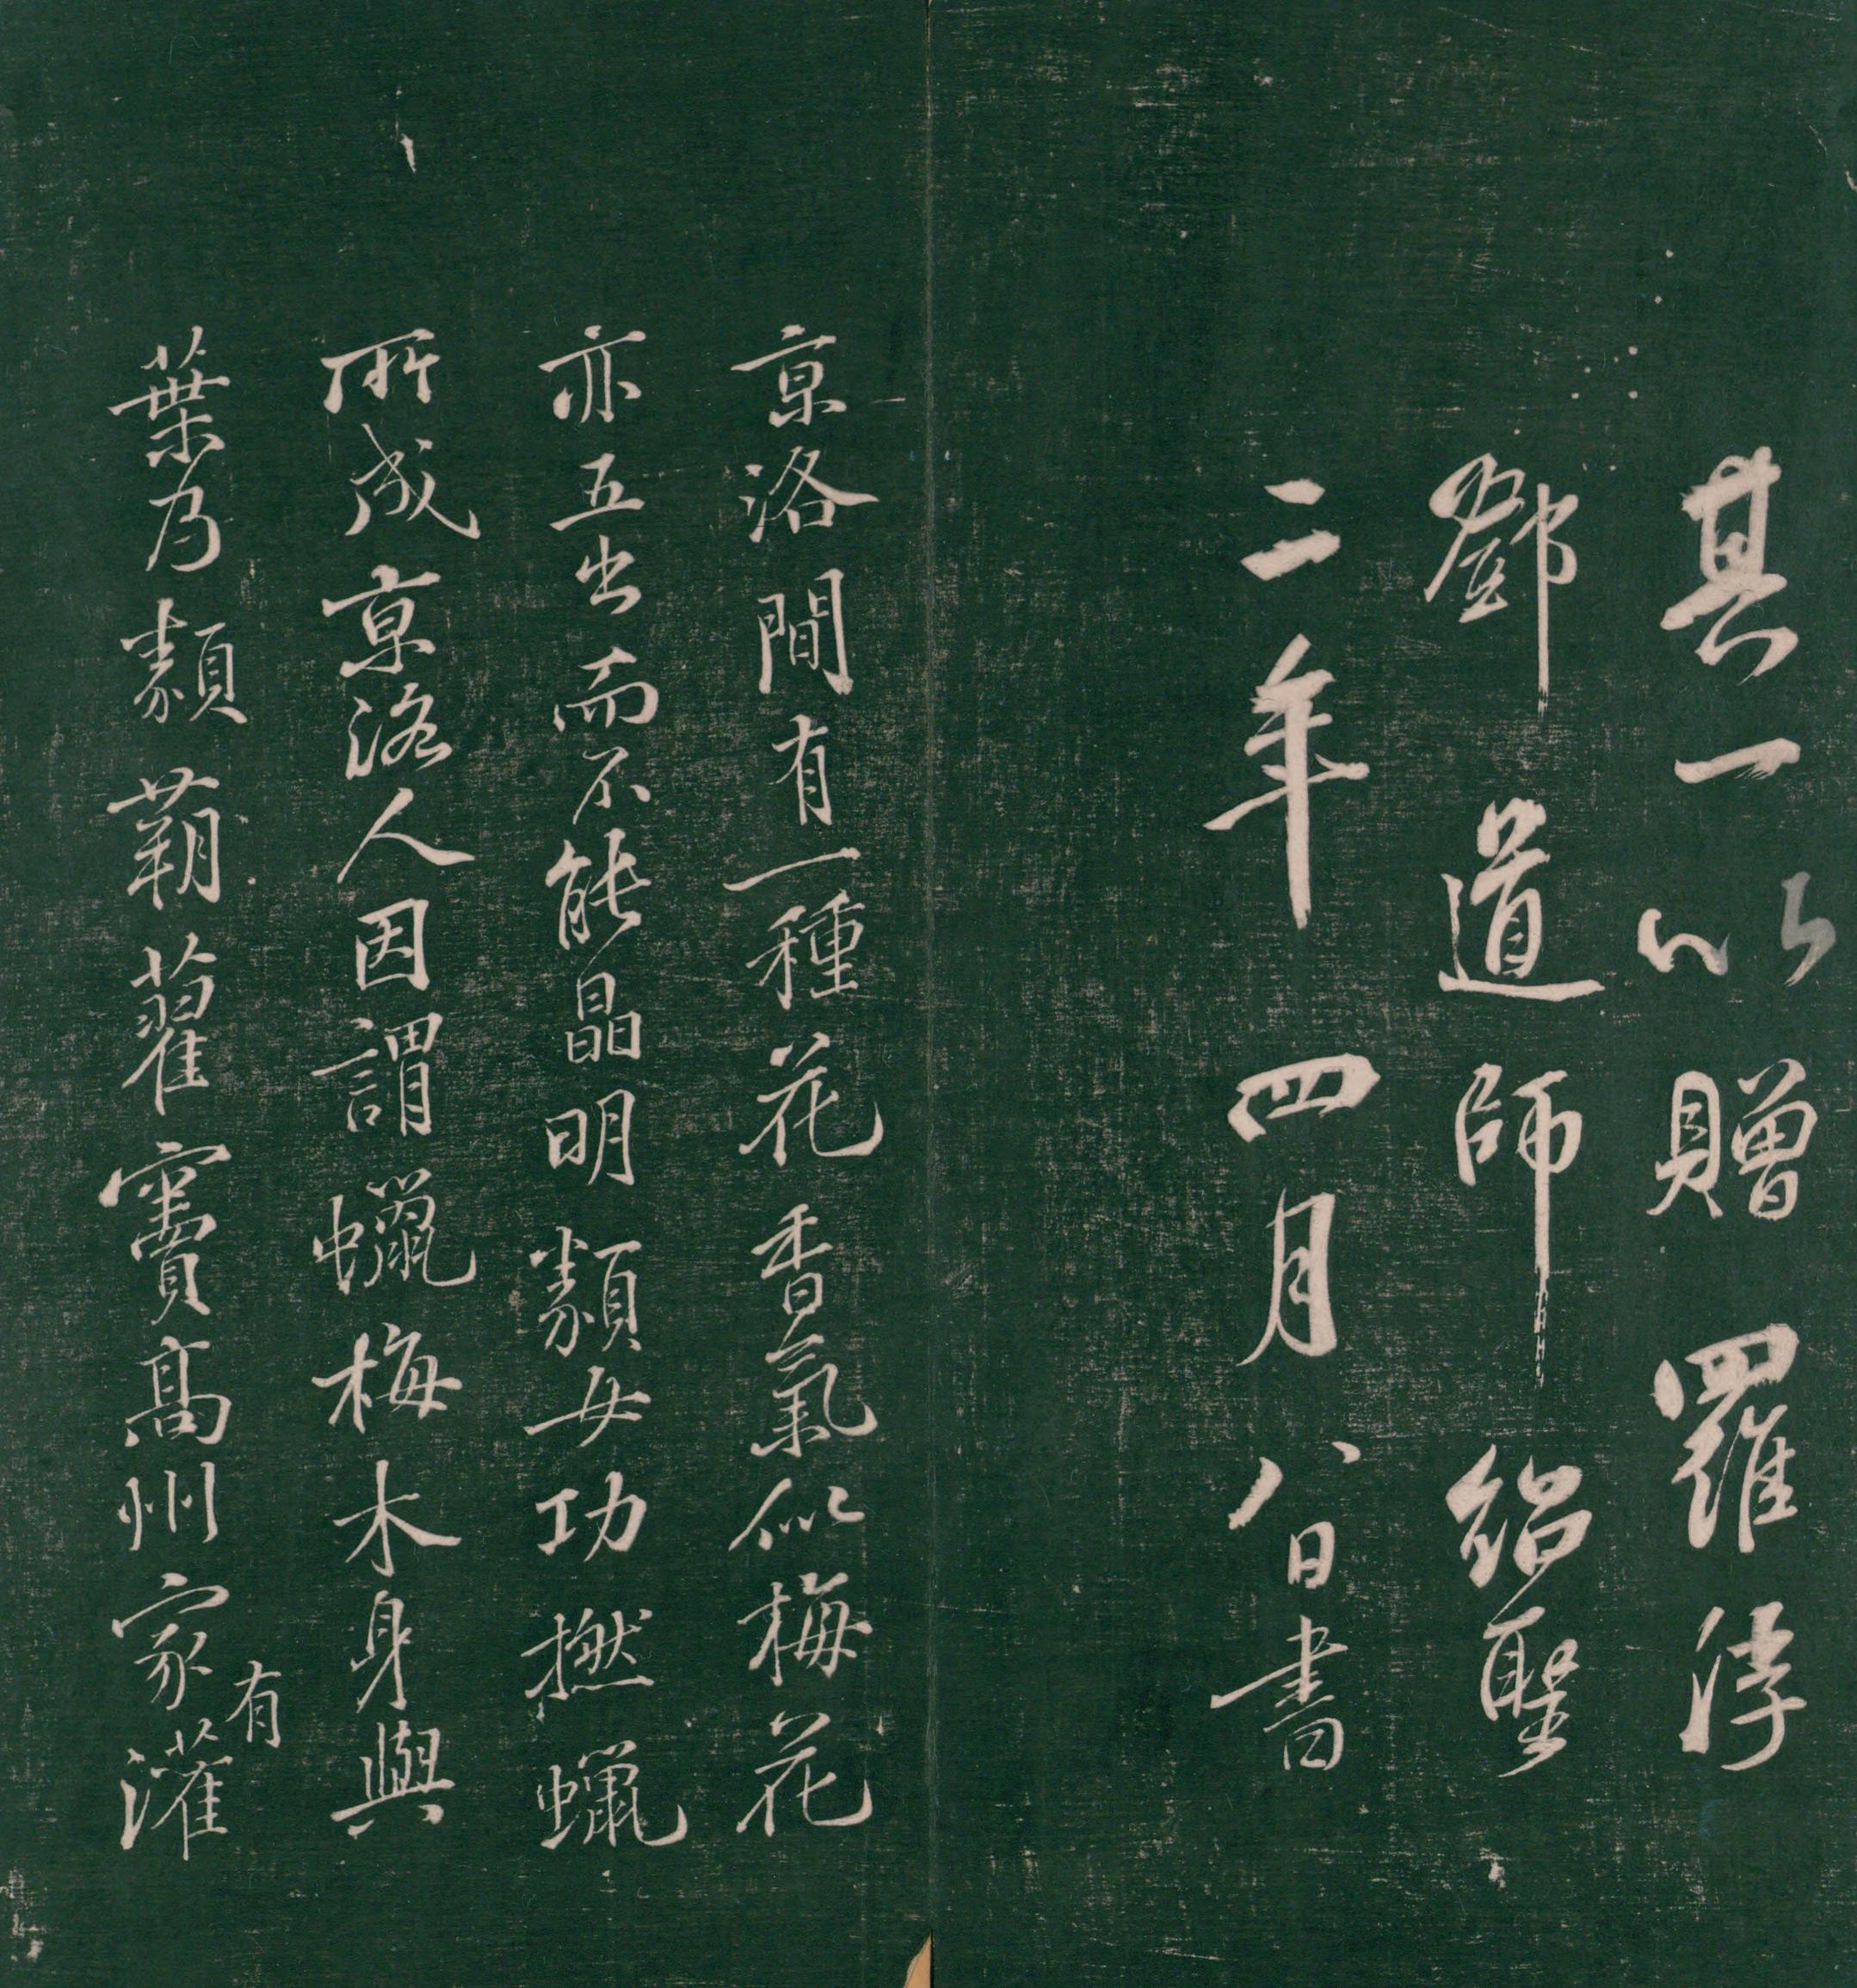 其一以贈羅浮
鄧道師紹聖
二年四月八日書
京洛間有一種花香氣似梅花
亦五出而不能晶明類女功撚蠟
所成京洛人因謂蠟梅木身與
葉乃類蒴藋竇高州家有灌